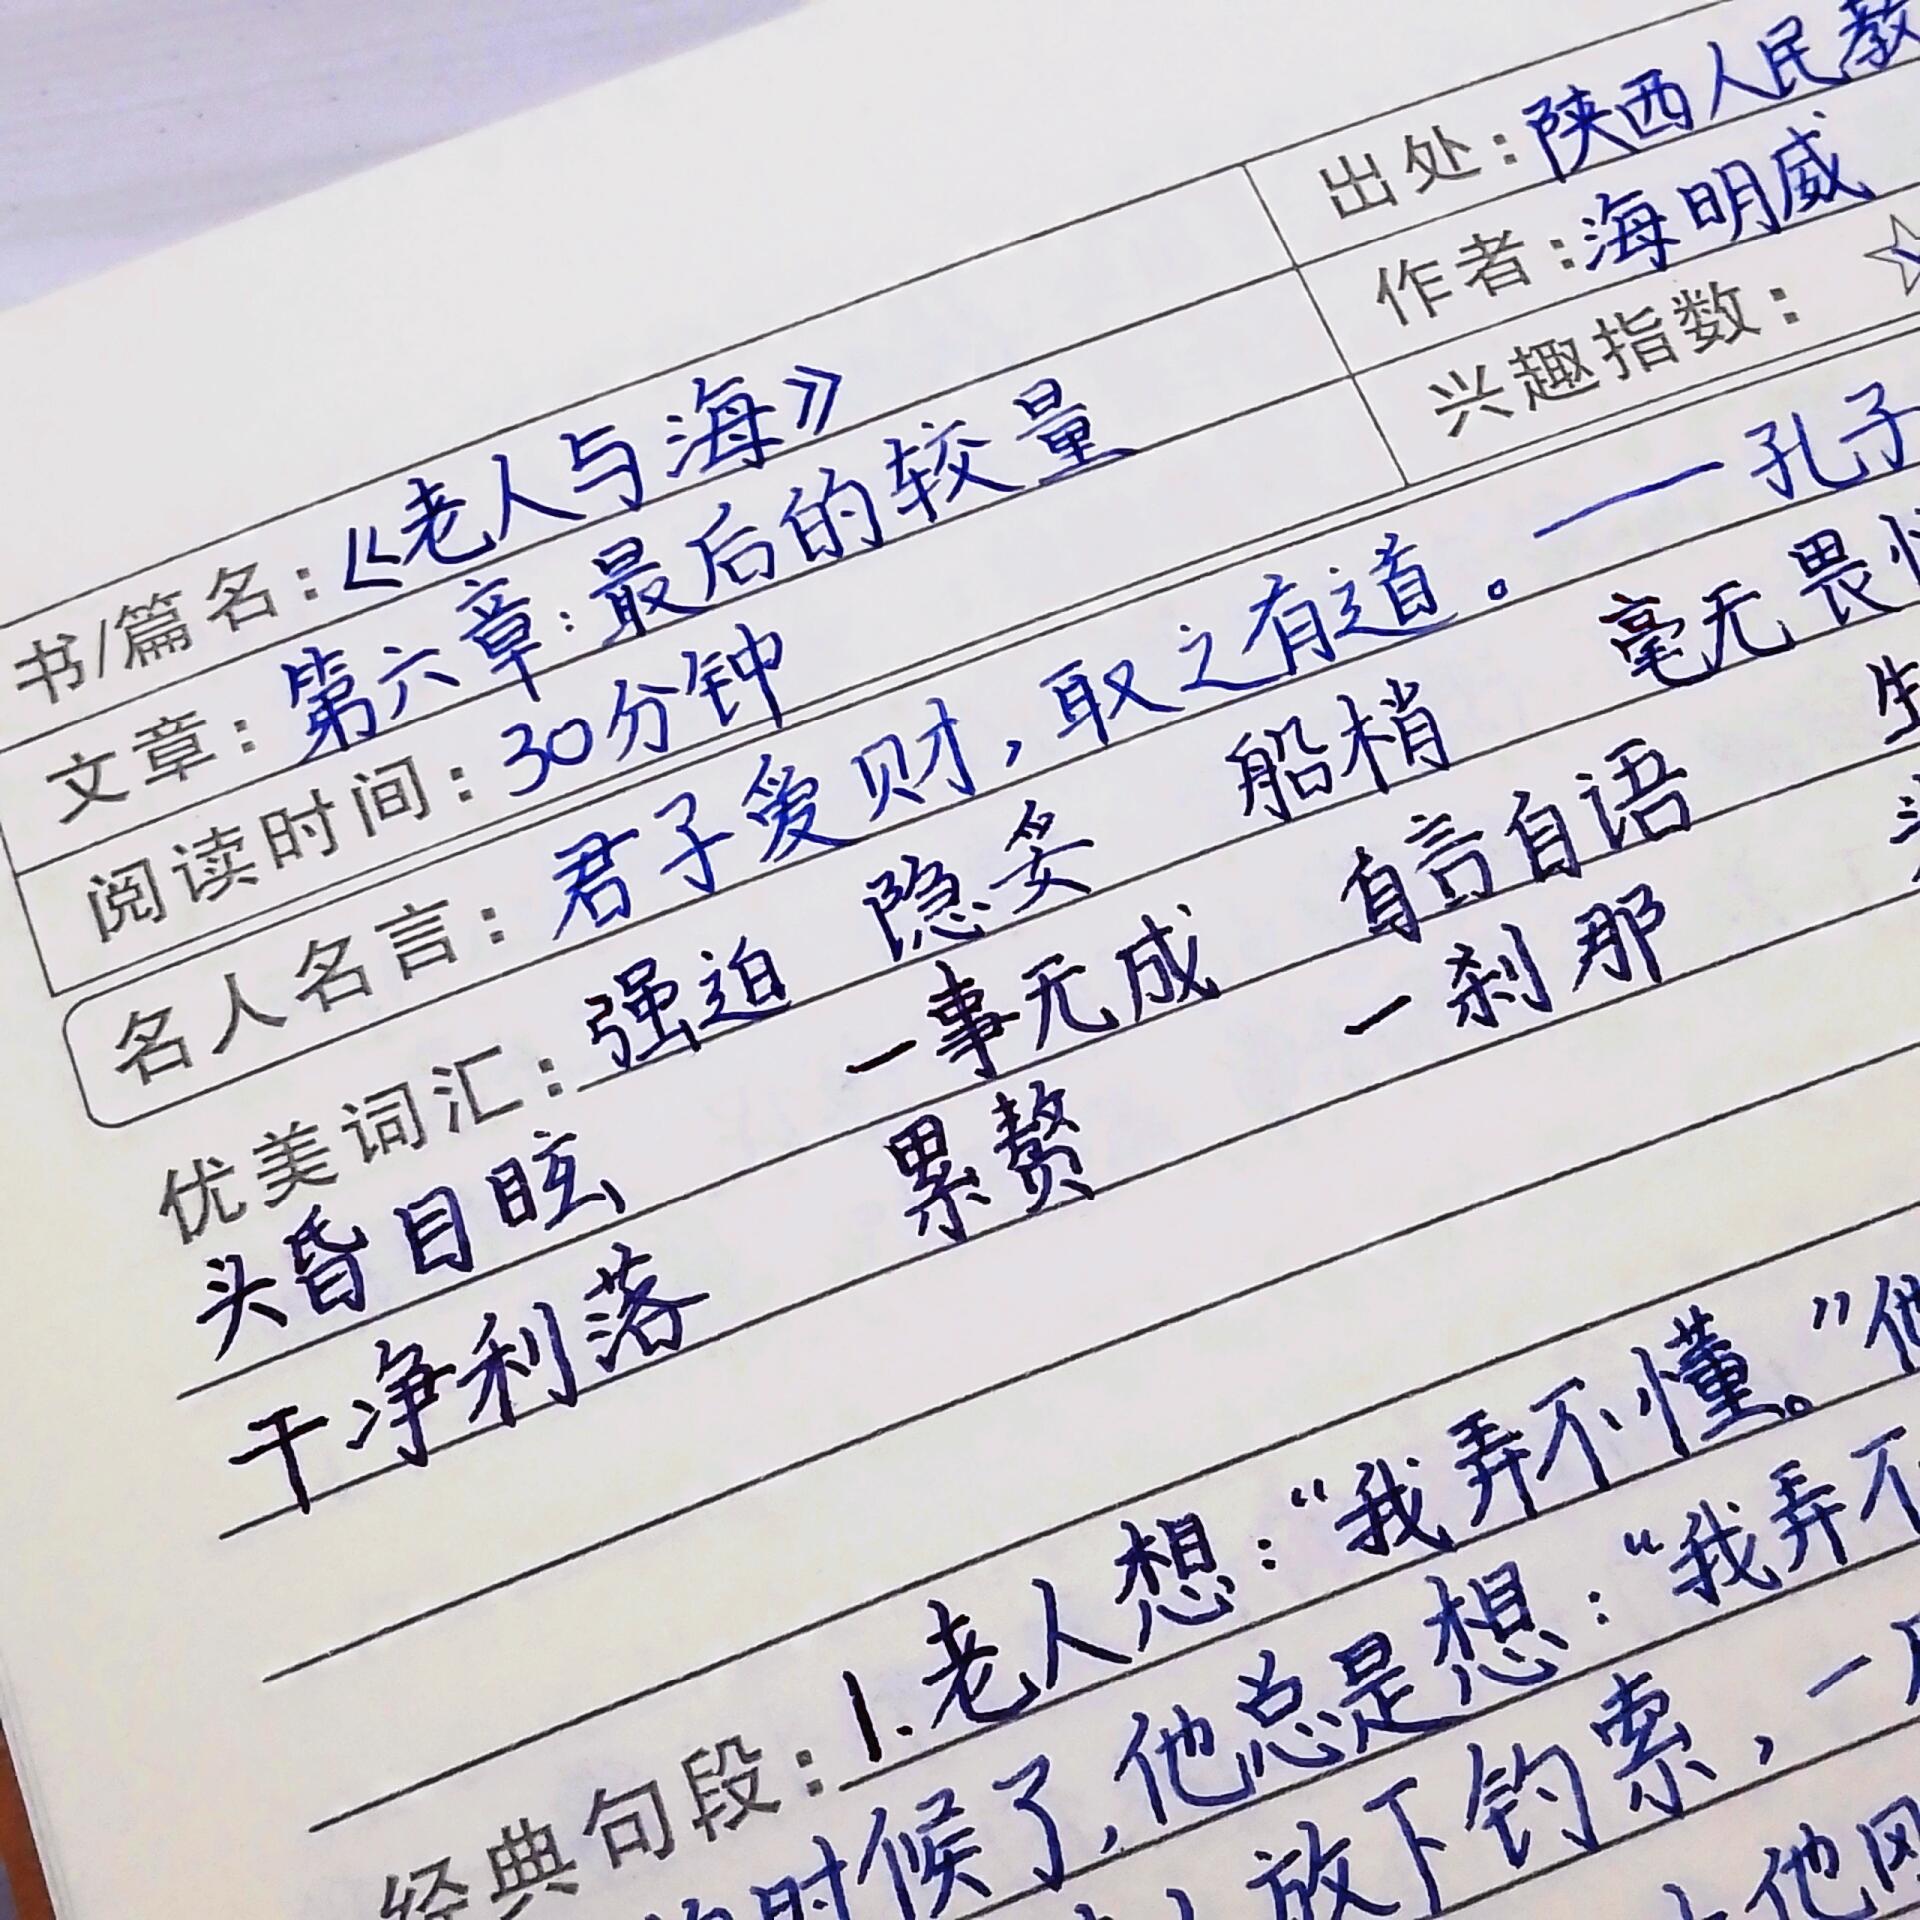 出处：陕西人民教
书/篇名：《老人与海》 作者：海明威
文章：第六章：最后的较量 兴趣指数：☆
阅读时间：30分钟
名人名言：君子爱财，取之有道。——孔子
优美词汇：强迫 隐妥 船梢 毫无畏
头昏目眩 一事无成 自言自语 生
干净利落 累赘 一刹那
经典句段：1.老人想：“我弄不懂。”他
时候了，他总是想：“我弄不
放下钓索，一
他